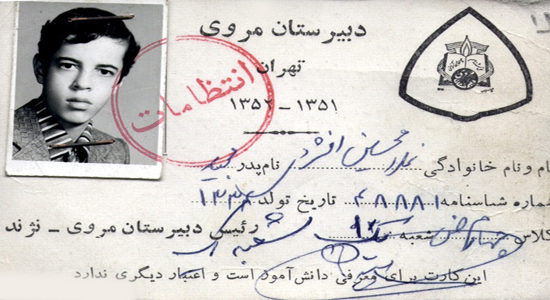 دبیرستان مروی
تهران
۱۳۵۱ – ۱۳۵۲
انتظامات
نام و نام خانوادگی غلامحسین افشردی نام پدر
شماره شناسنامه ۴۸۸۸۱ تاریخ تولد ۱۳۳۴
کلاس چهارم شعبه رئیس دبیرستان مروی – نژند
این کارت برای معرفی دانش‌آموز است و اعتبار دیگری ندارد